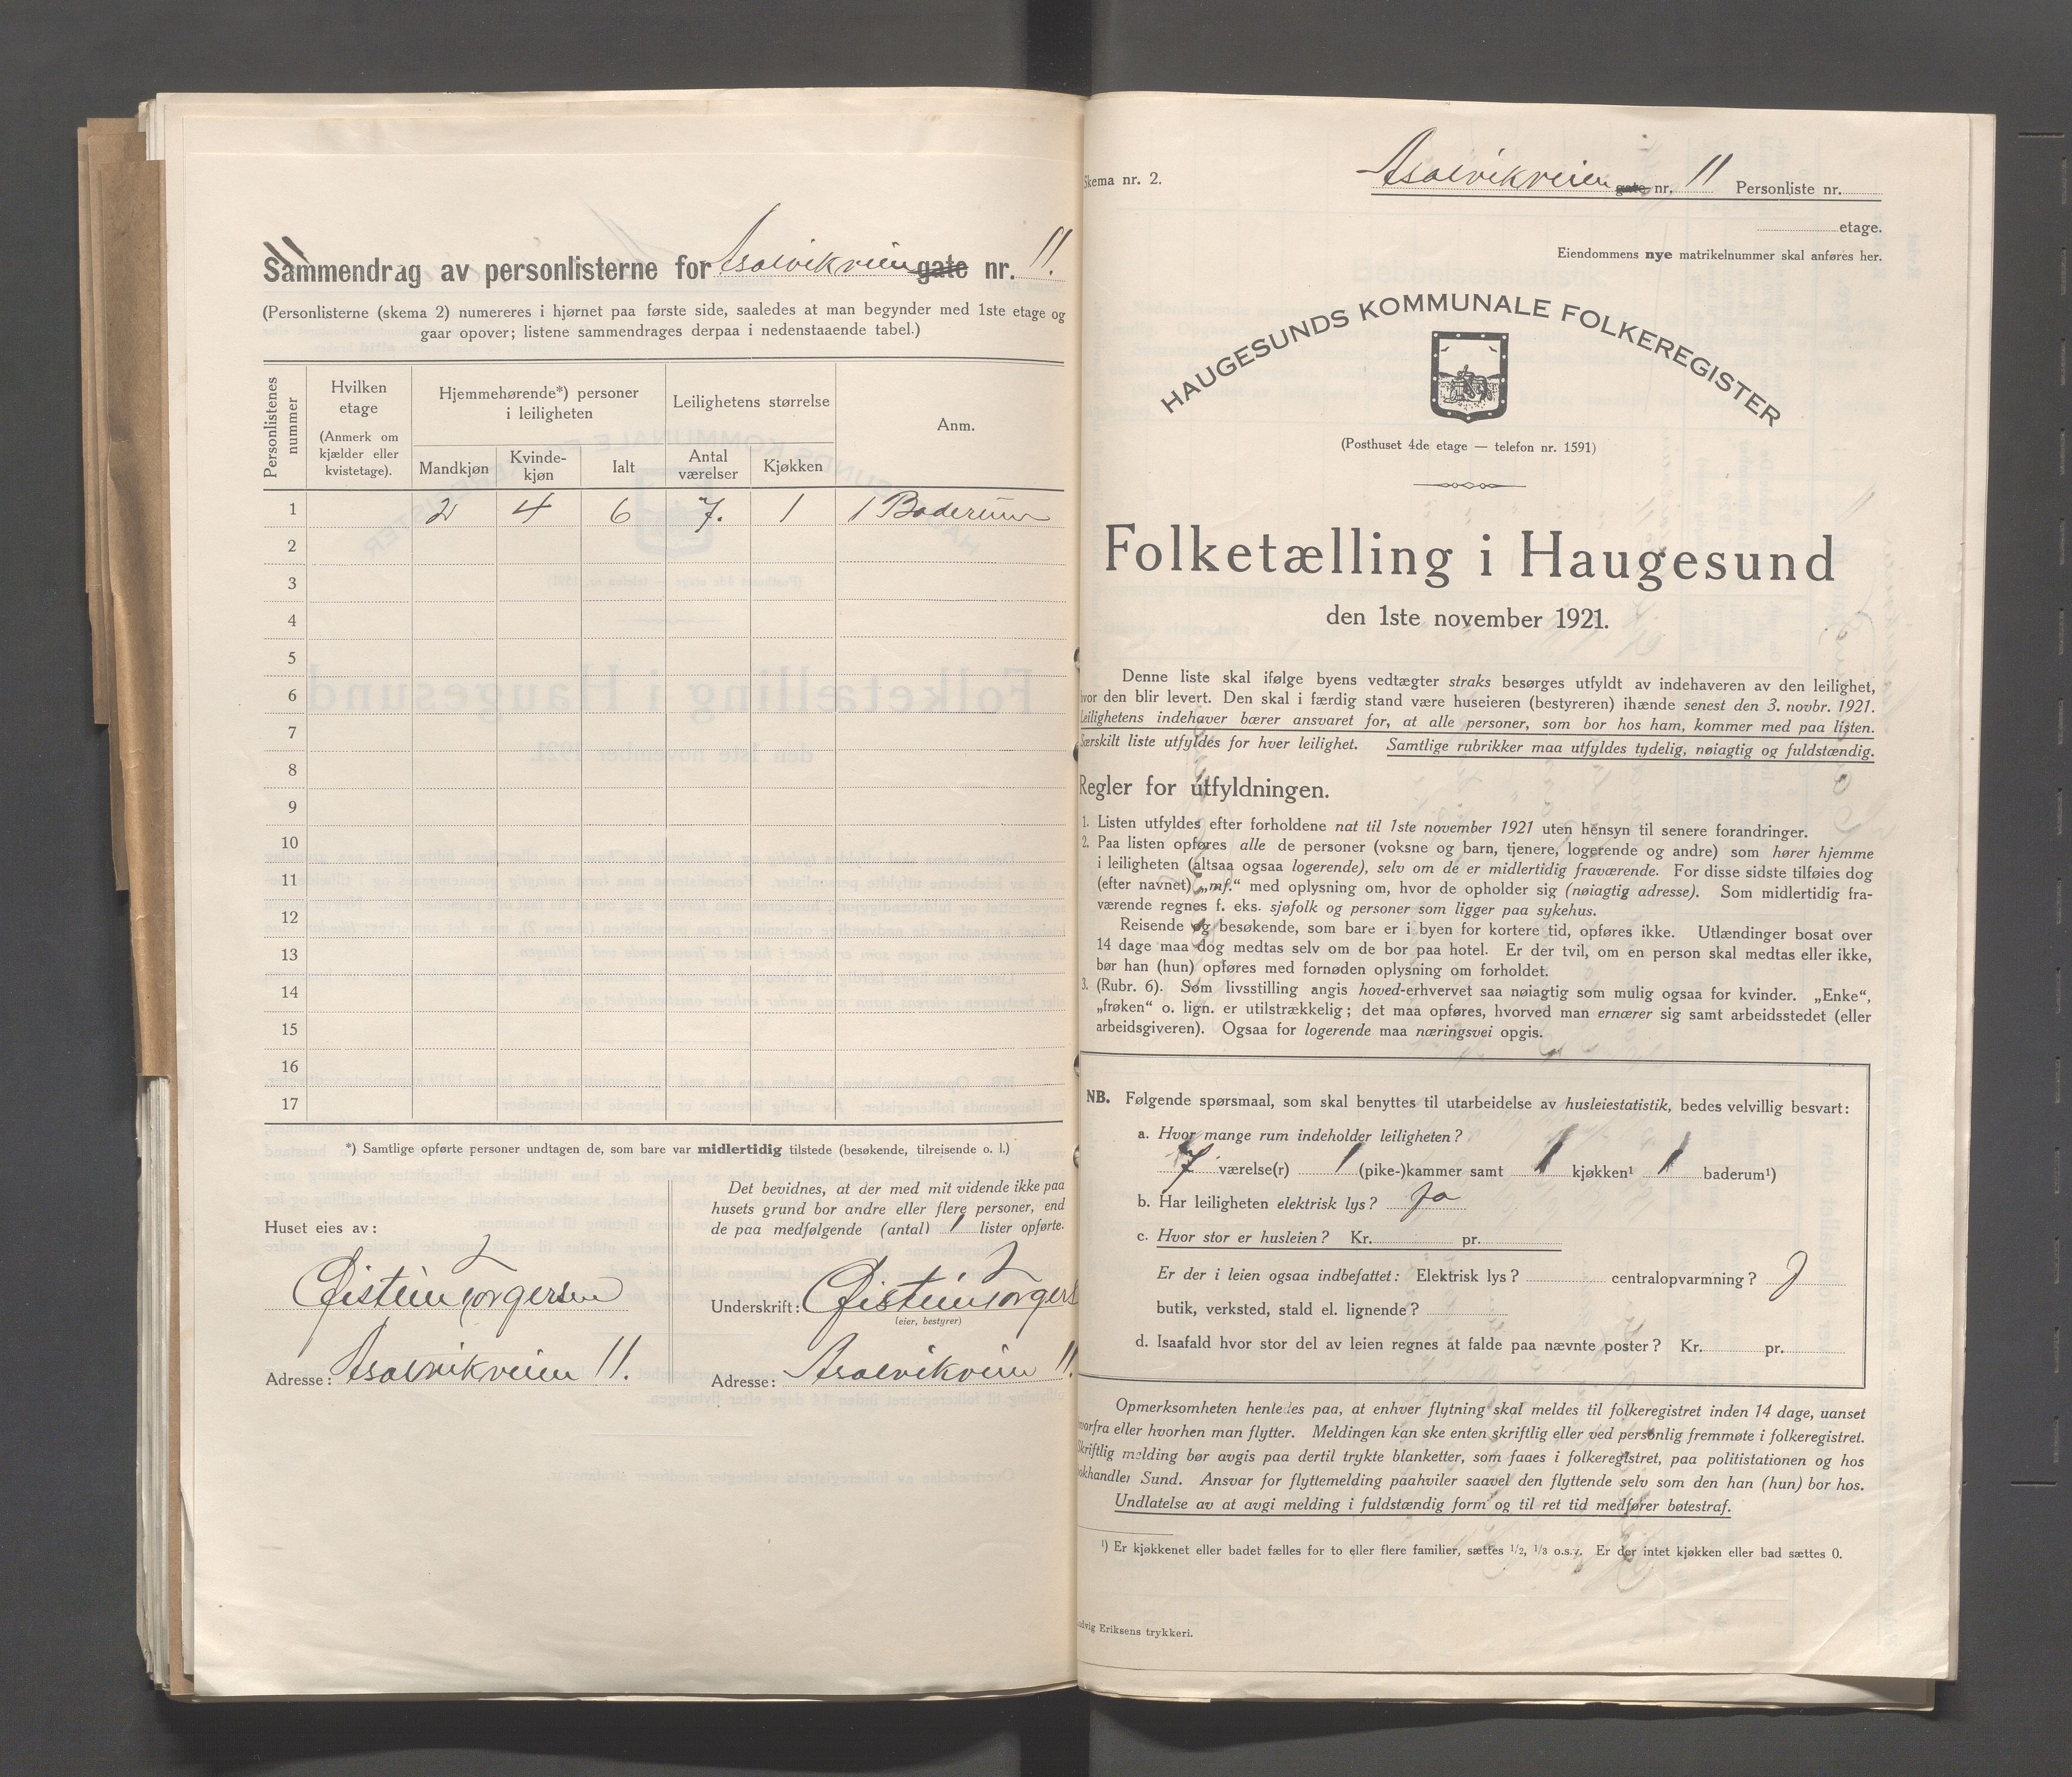 Sammendrag av personlisterne for Asalvikveien gate nr. 11.
(Personlisterne (skema 2) numereres i hjørnet paa første side, saaledes at man begynder med 1ste etage og
gaar opover; listene sammendrages derpaa i nedenstaaende tabel.)
Personlistenes nummer
Hvilken etage (Anmerk om kjælder eller kvistetage).
Hjemmehørende*) personer i leiligheten
Leilighetens størrelse
Anm.
Mandkjøn
Kvinde-kjøn
Ialt
Antal værelser
Kjøkken
1 2 4 6 7. 1 1 Baderum
2
3
4
5
6
7
8
9
10
11
12
13
14
15
16
17
*) Samtlige opførte personer undtagen de, som bare var midlertidig tilstede (besøkende, tilreisende o. l.)
Huset eies av:
Øistein Torgersen
Adresse: Asalvikveien 11.
Det bevidnes, at der med mit vidende ikke paa
husets grund bor andre eller flere personer, end
de paa medfølgende (antal) 1 lister opførte.
Underskrift: Øistein Torgers
(eier, bestyrer)
Adresse: Asalvikveien 11.
Skema nr. 2.
Asalvikveien gate nr. 11 Personliste nr.
etage.
Eiendommens nye matrikelnummer skal anføres her.
HAUGESUNDS KOMMUNALE FOLKEREGISTER
(Posthuset 4de etage — telefon nr. 1591)
Folketælling i Haugesund
den 1ste november 1921.
Denne liste skal ifølge byens vedtægter straks besørges utfyldt av indehaveren av den leilighet,
hvor den blir levert. Den skal i færdig stand være huseieren (bestyreren) ihænde senest den 3. novbr. 1921.
Leilighetens indehaver bærer ansvaret for, at alle personer, som bor hos ham, kommer med paa listen.
Særskilt liste utfyldes for hver leilighet. Samtlige rubrikker maa utfyldes tydelig, nøiagtig og fuldstændig.
Regler for utfyldningen.
1. Listen utfyldes efter forholdene nat til 1ste november 1921 uten hensyn til senere forandringer.
2. Paa listen opføres alle de personer (voksne og barn, tjenere, logerende og andre) som hører hjemme
i leiligheten (altsaa ogsaa logerende), selv om de er midlertidig fraværende. For disse sidste tilføies dog
(efter navnet) „mf.“ med oplysning om, hvor de opholder sig (nøiagtig adresse). Som midlertidig fra-
værende regnes f. eks. sjøfolk og personer som ligger paa sykehus.
Reisende og besøkende, som bare er i byen for kortere tid, opføres ikke. Utlændinger bosat over
14 dage maa dog medtas selv om de bor paa hotel. Er der tvil, om en person skal medtas eller ikke,
bør han (hun) opføres med fornøden oplysning om forholdet.
3. (Rubr. 6). Som livsstilling angis hoved-erhvervet saa nøiagtig som mulig ogsaa for kvinder. „Enke“,
„frøken“ o. lign. er utilstrækkelig; det maa opføres, hvorved man ernærer sig samt arbeidsstedet (eller
arbeidsgiveren). Ogsaa for logerende maa næringsvei opgis.
NB. Følgende spørsmaal, som skal benyttes til utarbeidelse av husleiestatistik, bedes velvillig besvart:
a. Hvor mange rum indeholder leiligheten?
7 værelse(r) 1 (pike-)kammer samt 1 kjøkken¹ 1 baderum¹)
b. Har leiligheten elektrisk lys? Ja
c. Hvor stor er husleien? Kr. pr.
Er der i leien ogsaa indbefattet: Elektrisk lys? centralopvarmning? J
butik, verksted, stald el. lignende?
d. Isaafald hvor stor del av leien regnes at falde paa nævnte poster? Kr. pr.
Opmerksomheten henledes paa, at enhver flytning skal meldes til folkeregistret inden 14 dage, uanset
hvorfra eller hvorhen man flytter. Meldingen kan ske enten skriftlig eller ved personlig fremmøte i folkeregistret.
Skriftlig melding bør avgis paa dertil trykte blanketter, som faaes i folkeregistret, paa politistationen og hos
bokhandler Sund. Ansvar for flyttemelding paahviler saavel den flyttende selv som den han (hun) bor hos.
Undlatelse av at avgi melding i fuldstændig form og til ret tid medfører bøtestraf.
¹) Er kjøkkenet eller badet fælles for to eller flere familier, sættes 1/2, 1/3 o.s.v. Er der intet kjøkken eller bad sættes 0.
Ludvig Eriksens trykkeri.